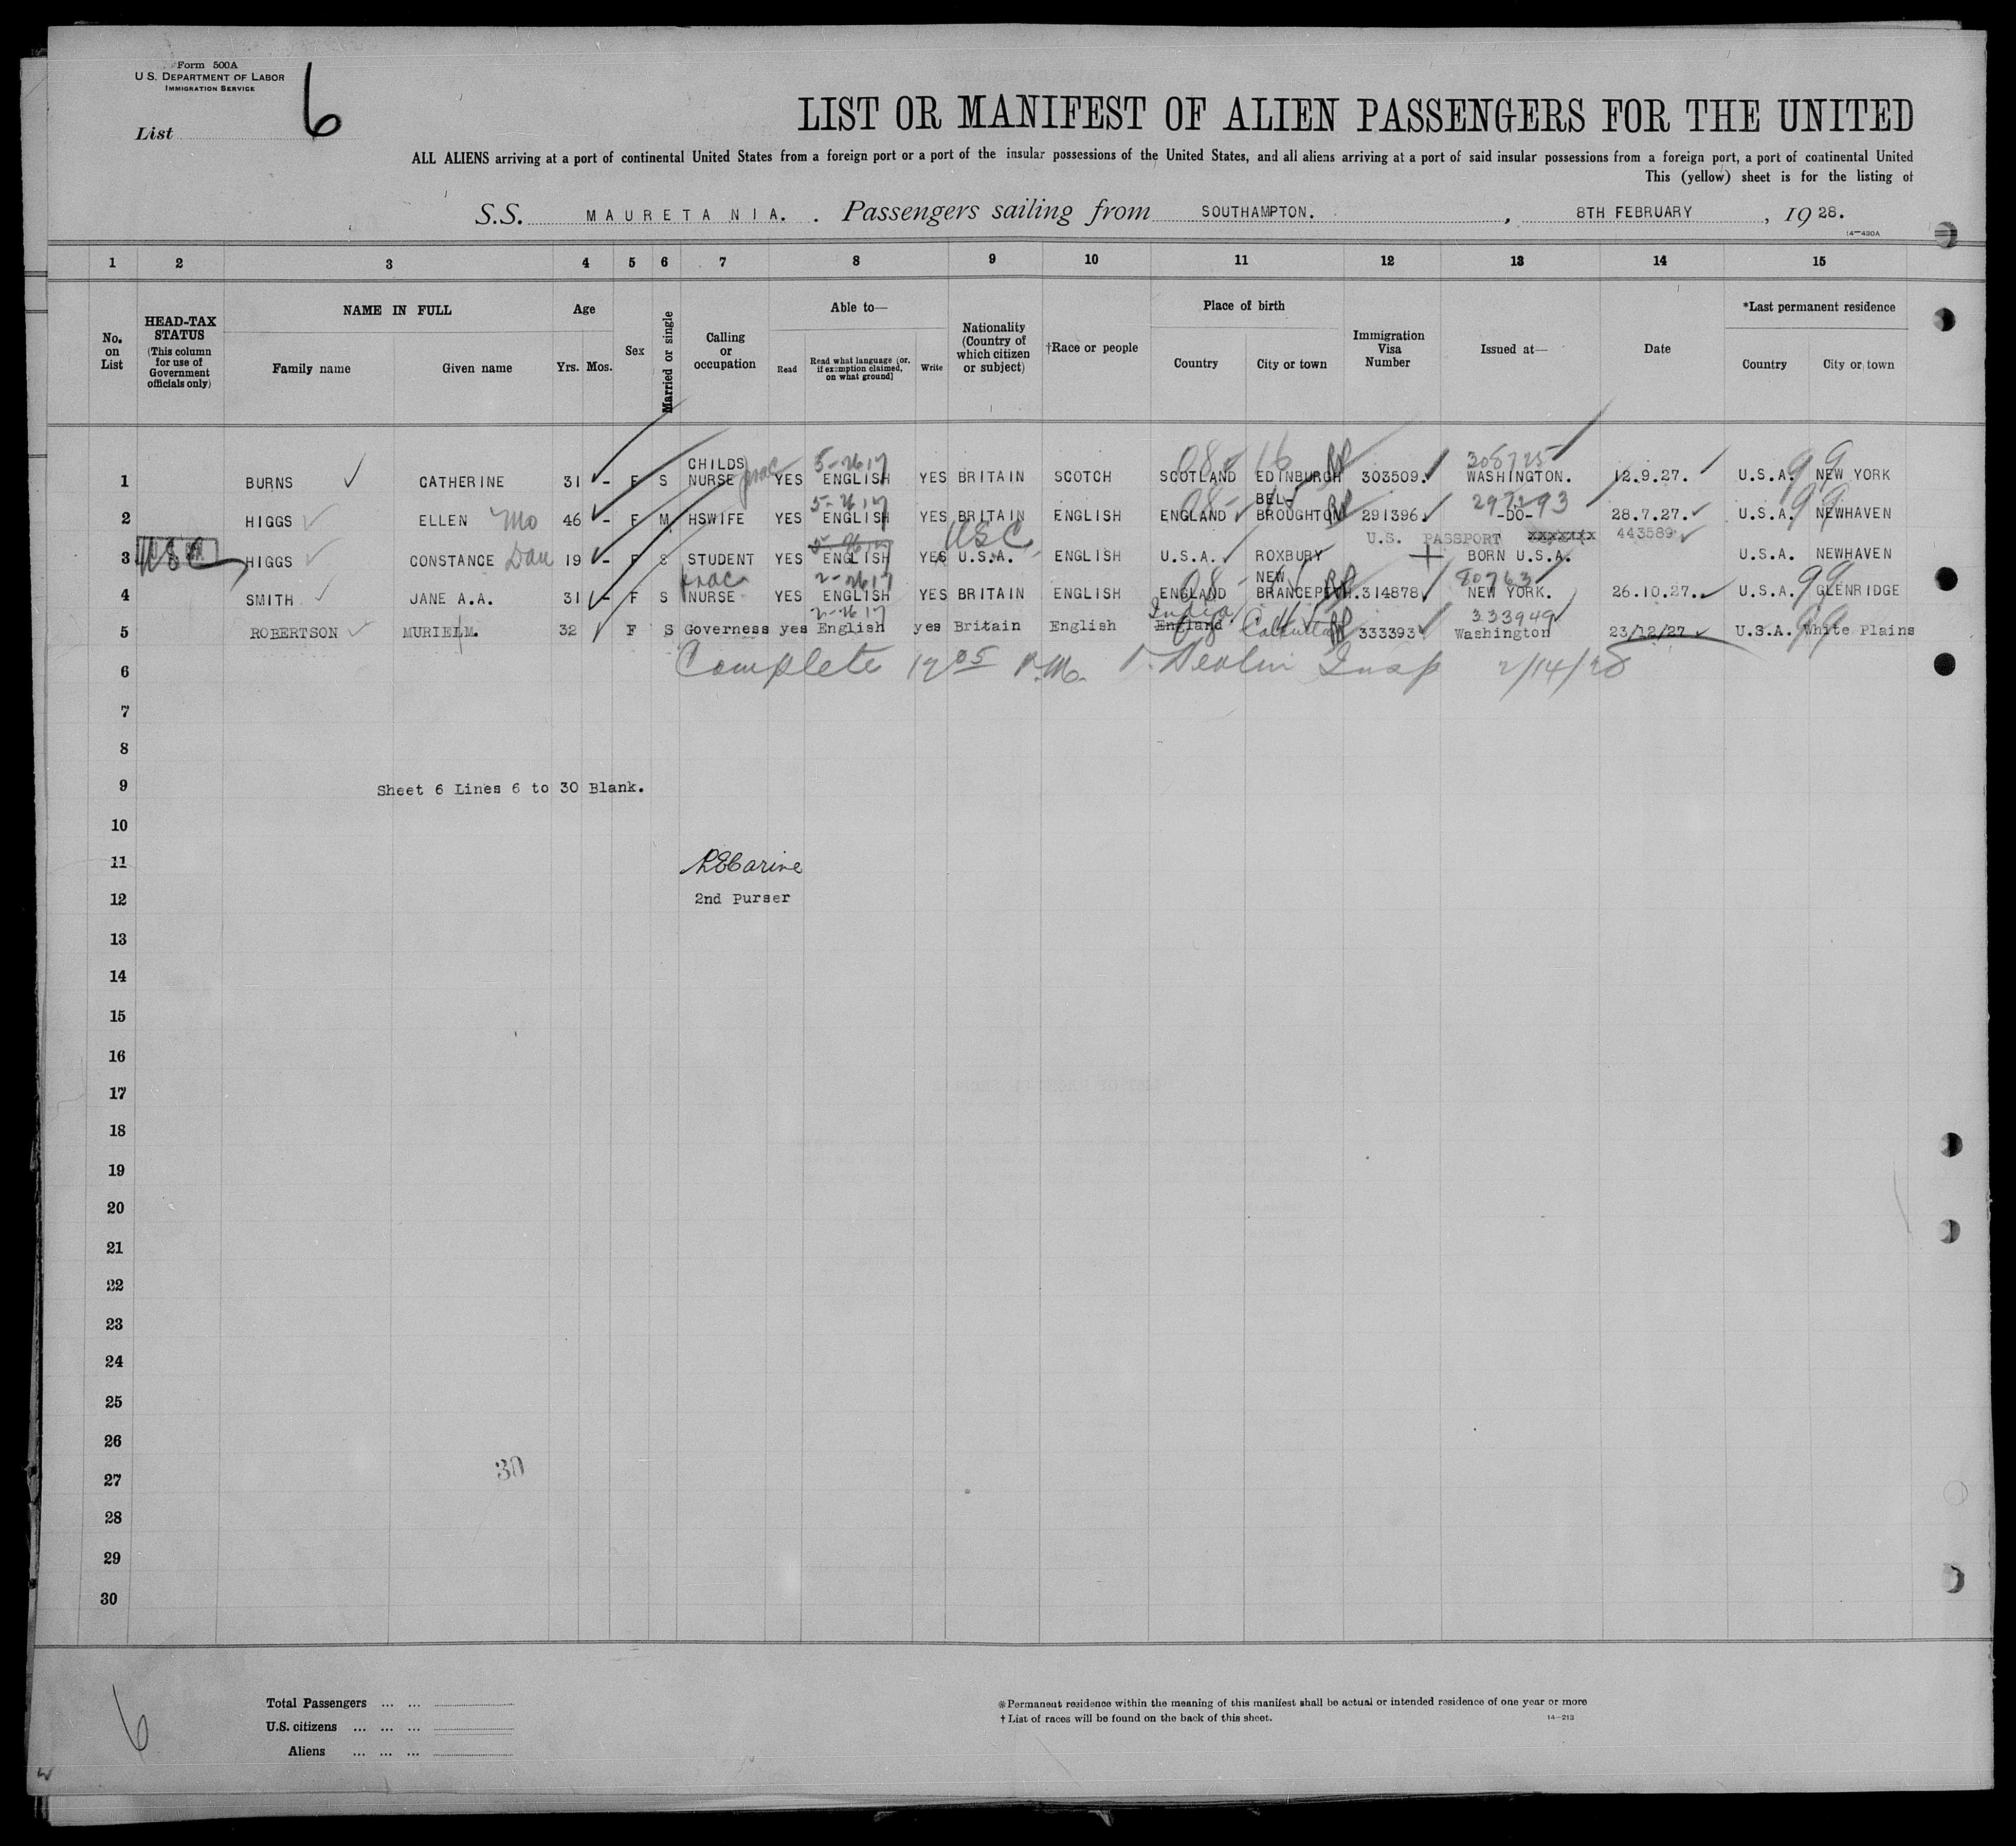 Form 500A
U.S. DEPARTMENT OF LABOR
IMMIGRATION SERVICE
List 6
LIST OR MANIFEST OF ALIEN PASSENGERS FOR THE UNITED
ALL ALIENS arriving at a port of continental United States from a foreign port or a port of the insular possessions of the United States, and all aliens arriving at a port of said insular possessions from a foreign port, a port of continental United
This (yellow) sheet is for the listing of
S.S. MAURETANIA. Passengers sailing from SOUTHAMPTON. , 8TH FEBRUARY , 1928.
14-430A
1 2 3 4 5 6 7 8 9 10 11 12 13 14 15
No. on List
HEAD-TAX STATUS (This column for use of Government officials only)
NAME IN FULL
Family name Given name
Age
Yrs. Mos.
Sex
Married or single
Calling or occupation
Able to—
Read Read what language (or, if exemption claimed, on what ground) Write
Nationality (Country of which citizen or subject)
†Race or people
Place of birth
Country City or town
Immigration Visa Number
Issued at—
Date
*Last permanent residence
Country City or town
5-2617 08- 16 308725
1 BURNS CATHERINE 31 - F S CHILDS NURSE YES ENGLISH YES BRITAIN SCOTCH SCOTLAND EDINBURGH 303509. WASHINGTON. 12.9.27. U.S.A. 99 NEW YORK
5-2617 08- 297293
2 HIGGS ELLEN Mo 46 - F M HSWIFE YES ENGLISH YES BRITAIN ENGLISH ENGLAND BEL-BROUGHTON 291396. -DO- 28.7.27. U.S.A. 99 NEWHAVEN
5-2617 USC U.S. PASSPORT xxxxxxx 443589
3 USC HIGGS CONSTANCE Dau 19 - F S STUDENT YES ENGLISH YES U.S.A. ENGLISH U.S.A. ROXBURY BORN U.S.A. U.S.A. NEWHAVEN
2-2617 08- 80763
4 SMITH JANE A.A. 31 - F S NURSE YES ENGLISH YES BRITAIN ENGLISH ENGLAND NEW BRANCEPETH. 314878. NEW YORK. 26.10.27. U.S.A. 99 GLENRIDGE
2-2617 India 333949
5 ROBERTSON MURIEL M. 32 F S Governess yes English yes Britain English England Calcutta 333393. Washington 23/12/27 U.S.A. 99 White Plains
6 Complete 12 05 P.M. Devlin Insp 2/14/28
7
8
9 Sheet 6 Lines 6 to 30 Blank.
10
11
12 2nd Purser
13
14
15
16
17
18
19
20
21
22
23
24
25
26
27 30
28
29
30
6
Total Passengers ... ...
U.S. citizens ... ... ...
Aliens ... ... ...
*Permanent residence within the meaning of this manifest shall be actual or intended residence of one year or more
† List of races will be found on the back of this sheet.
14-213